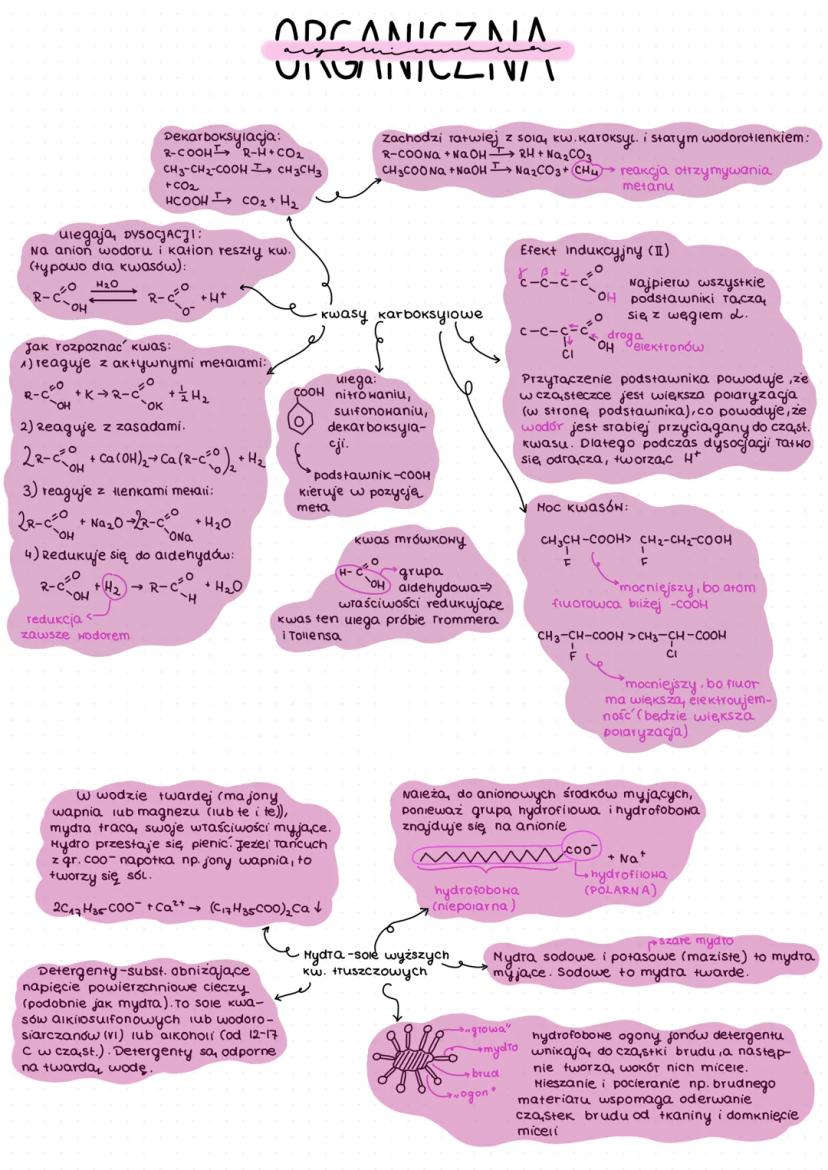 ORGANICZNA
organiczna
Dekarboksylacja:
R-COOH T→ R-H + CO₂
CH₃-CH₂-COOH T→ CH₃CH₃
+CO₂
HCOOH T→ CO₂ + H₂
zachodzi łatwiej z solą kw. karoksyl. i stałym wodorotlenkiem:
R-COONa + NaOH T→ RH + Na₂CO₃
CH₃COONa + NaOH T→ Na₂CO₃ + CH₄ → reakcja otrzymywania
metanu
ulegają DYSOCJACJI:
Na anion wodoru i kation reszty kw.
(typowo dla kwasów):
R-C(=O)OH ⇌ H₂O R-C(=O)O⁻ + H⁺
kwasy karboksylowe
Efekt indukcyjny (II)
γ β α
C-C-C-C(=O)OH
Najpierw wszystkie
podstawniki łączą
się z węglem α.
C-C-C-C(=O)OH
Cl
droga
elektronów
Przyłączenie podstawnika powoduje, że
w cząsteczce jest większa polaryzacja
(w stronę podstawnika), co powoduje, że
wodór jest słabiej przyciągany do cząst.
kwasu. Dlatego podczas dysocjacji łatwo
się odrącza, tworząc H⁺
Jak rozpoznać kwas:
1) reaguje z aktywnymi metalami:
R-C(=O)OH + K → R-C(=O)OK + ½ H₂
2) Reaguje z zasadami.
2R-C(=O)OH + Ca(OH)₂ → Ca(R-C(=O)O)₂ + H₂
3) reaguje z tlenkami metali:
2R-C(=O)OH + Na₂O → 2R-C(=O)ONa + H₂O
4) Redukuje się do aldehydów:
R-C(=O)OH + H₂ → R-C(=O)H + H₂O
redukcja
zawsze wodorem
COOH
ulega:
nitrowaniu,
sulfonowaniu,
dekarboksyla-
cji.
podstawnik -COOH
kieruje w pozycję
meta
kwas mrówkowy
H-C(=O)OH → grupa
aldehydowa ⇒
właściwości redukujące
kwas ten ulega próbie Trommera
i Tollensa
Moc kwasów:
CH₃CH-COOH > CH₂-CH₂-COOH
F F
mocniejszy, bo atom
fluorowca bliżej -COOH
CH₃-CH-COOH > CH₃-CH-COOH
F Cl
mocniejszy, bo fluor
ma większą elektroujem-
ność (będzie większa
polaryzacja)
W wodzie twardej (ma jony
wapnia lub magnezu (lub te i te)),
mydła tracą swoje właściwości myjące.
Mydło przestaje się pienić. Jeżel łańcuch
z gr. COO⁻ napotka np. jony wapnia, to
tworzy się sól.
2C₁₇H₃₅COO⁻ + Ca²⁺ → (C₁₇H₃₅COO)₂Ca↓
Należą do anionowych środków myjących,
ponieważ grupa hydrofilowa i hydrofobowa
znajduje się na anionie
COO⁻ + Na⁺
hydrofobowa
(niepolarna)
hydrofilowa
(POLARNA)
Mydła-sole wyższych
kw. tłuszczowych
szare mydło
Mydła sodowe i potasowe (maziste) to mydła
myjące. Sodowe to mydła twarde.
Detergenty-subst. obniżające
napięcie powierzchniowe cieczy
(podobnie jak mydła). To sole kwa-
sów alkilosulfonowych lub wodoro-
siarczanów (VI) lub alkoholi (od 12-17
C w cząst.). Detergenty są odporne
na twardą wodę.
„głowa"
mydło
brud
„ogon"
hydrofobowe ogony jonów detergentu
wnikają do cząstki brudu, a następ-
nie tworzą wokół nich micele.
Mieszanie i pocieranie np. brudnego
materiału wspomaga oderwanie
cząstek brudu od tkaniny i domknięcie
miceli